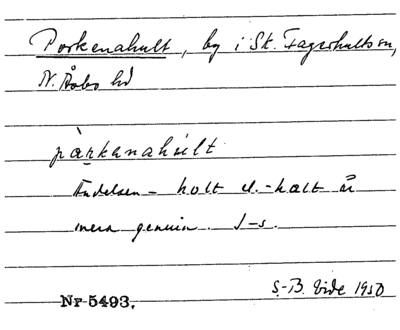 Porkenahult, by i Sk. Fagerhults sn,
N. Åsbo hd
pàrkenahùlt
Ändelsen -holt el. -halt är
mera genuin. J-s.
S.-B. Vide 1950
Nr 5493.